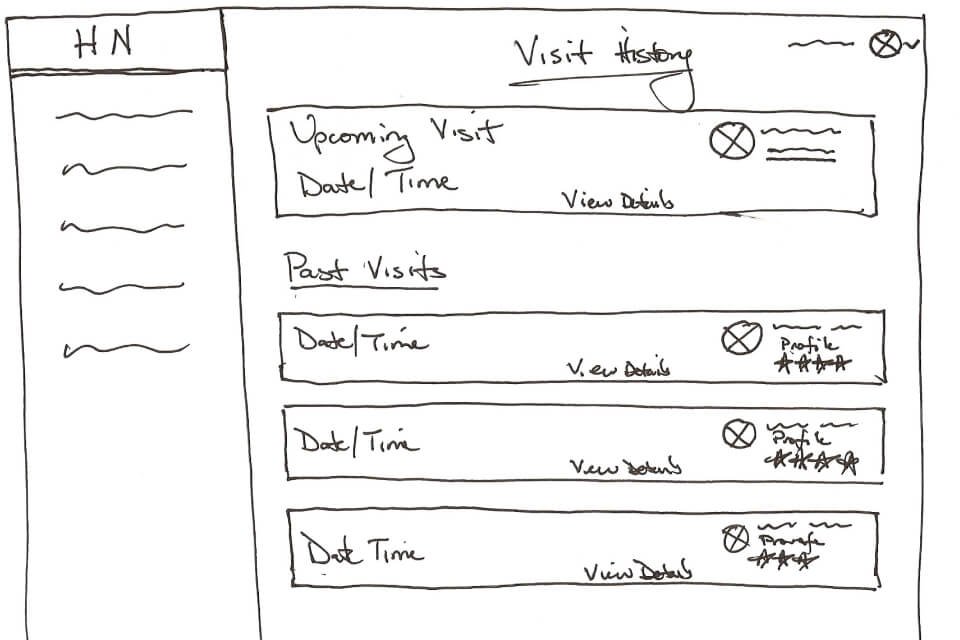 HN
Visit History
Upcoming Visit
Date/Time
View Details
Past Visits
Date/Time
View Details
Profile
Date/Time
View Details
Profile
Date Time
View Details